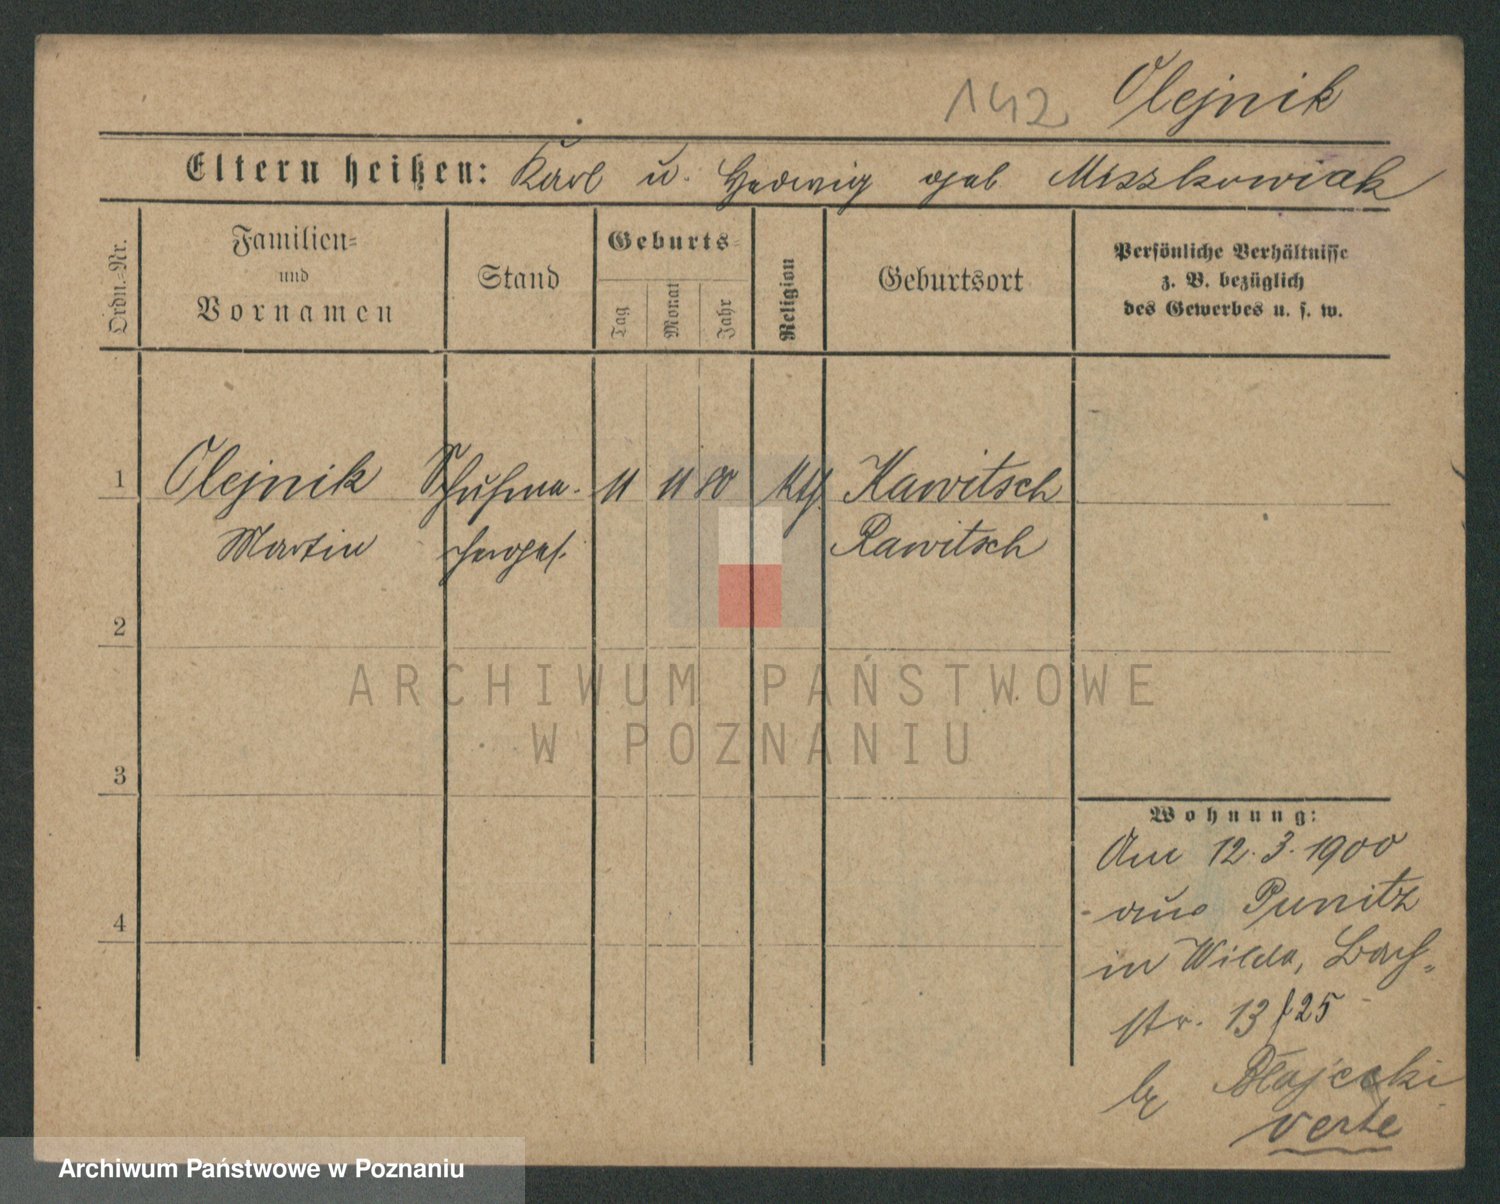 142 Olejnik
Eltern heißen: Karl u. Hedwig geb Miszkowiak
Ordn.-Nr.
Familien-
und
Vornamen
Stand
Geburts-
Tag
Monat
Jahr
Religion
Geburtsort
Persönliche Verhältnisse
z. B. bezüglich
des Gewerbes u. s. w.
1 Olejnik Schuhma- 11 11 80 kth. Kawitsch
Martin cherges. Rawitsch
2
ARCHIWUM PAŃSTWOWE
W POZNANIU
3
Wohnung:
Am 12.3.1900
aus Punitz
in Wilda, Bach-
4
str. 13/25
bz Błajecki
verte
Archiwum Państwowe w Poznaniu